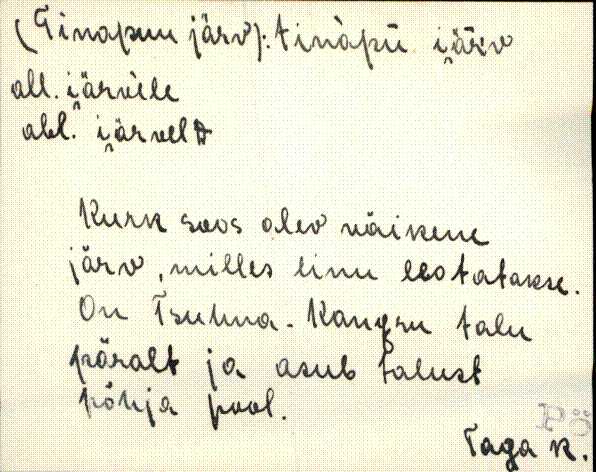 (Tinapuu järv): tinàpū i̯ärv
all. i̯ärvele
abl. i̯ärvelt
Kurk soos olev väikene
järv, milles linu leotatakse.
On Tsuhna-Kangru talu
päralt ja asub talust
põhja pool.
Pö
Taga k.